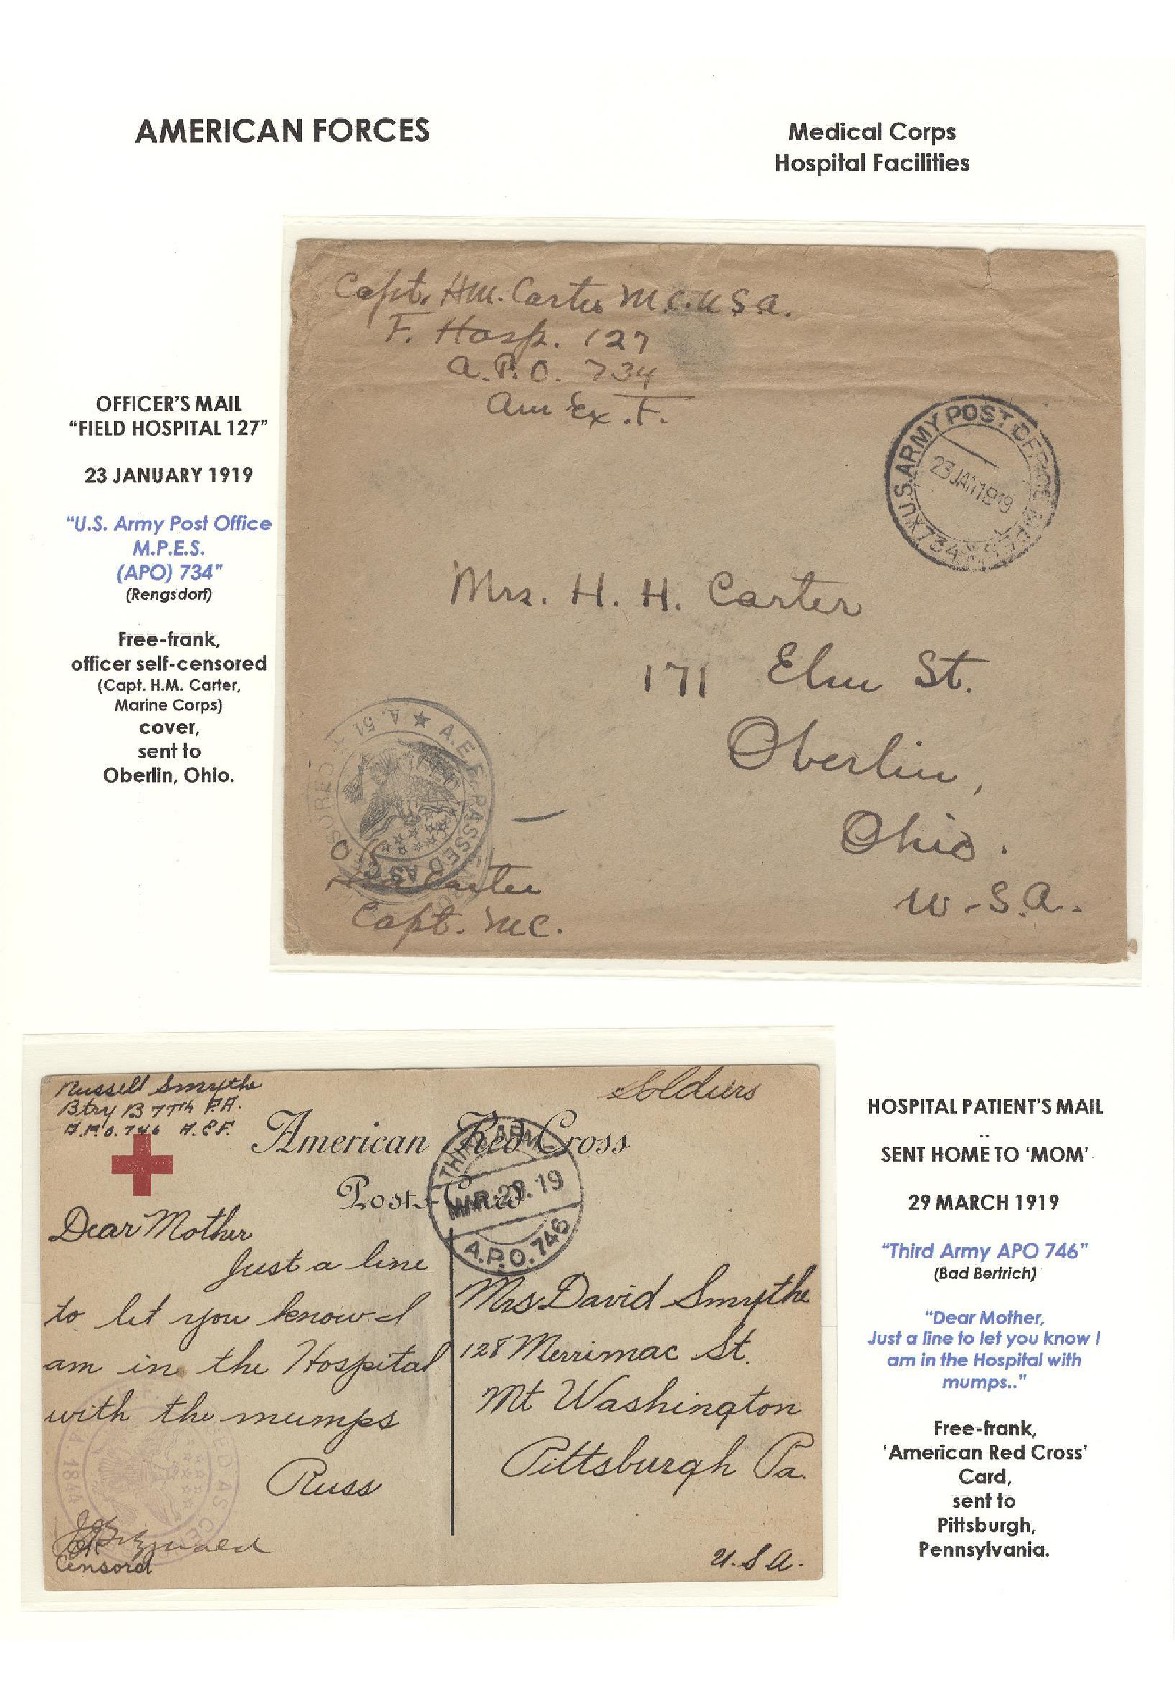 AMERICAN FORCES
Medical Corps
Hospital Facilities
OFFICER'S MAIL
"FIELD HOSPITAL 127"
23 JANUARY 1919
"U.S. Army Post Office
M.P.E.S.
(APO) 734"
(Rengsdorf)
Free-frank,
officer self-censored
(Capt. H.M. Carter,
Marine Corps)
cover,
sent to
Oberlin, Ohio.
Capt. H.M. Carter M.C. U.S.A.
F. Hosp. 127
A.P.O. 734
Am Ex. F.
U.S. ARMY POST OFFICE M.P.E.S.
734
Mrs. H. H. Carter
171 Elm St.
Oberlin,
Ohio.
U.S.A.
A.E.F. PASSED AS CENSORED
A. 51
Carter
Capt. MC.
Russell Smythe
Btry B 77th F.A.
A.P.O. 746 A.E.F.
Soldiers
American Red Cross
Post-Card
THIRD ARMY
MAR. 29. 19
A.P.O. 746
Dear Mother
Just a line
to let you know I
am in the Hospital
with the mumps
Russ
Mrs David Smythe
128 Merrimac St.
Mt Washington
Pittsburgh Pa.
U.S.A.
A 1844
OK
Censord
HOSPITAL PATIENT'S MAIL
SENT HOME TO 'MOM'
29 MARCH 1919
"Third Army APO 746"
(Bad Bertrich)
"Dear Mother,
Just a line to let you know I
am in the Hospital with
mumps.."
Free-frank,
'American Red Cross'
Card,
sent to
Pittsburgh,
Pennsylvania.